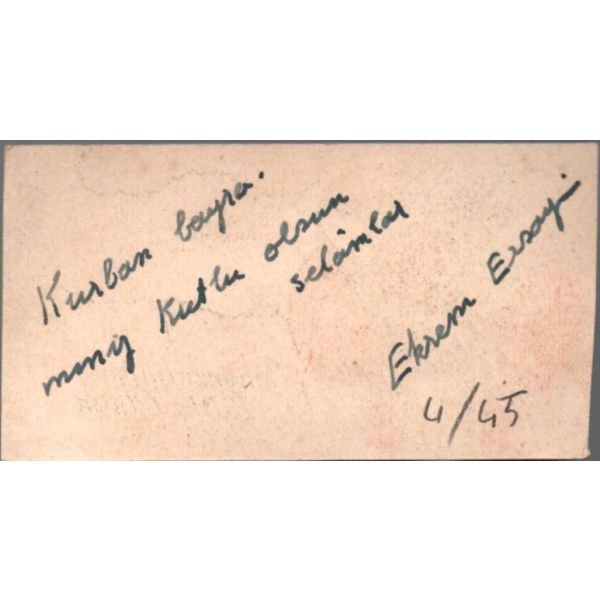 Kurban bayra-
mınız kutlu olsun
selâmlar
Ekrem Ersay
4/45